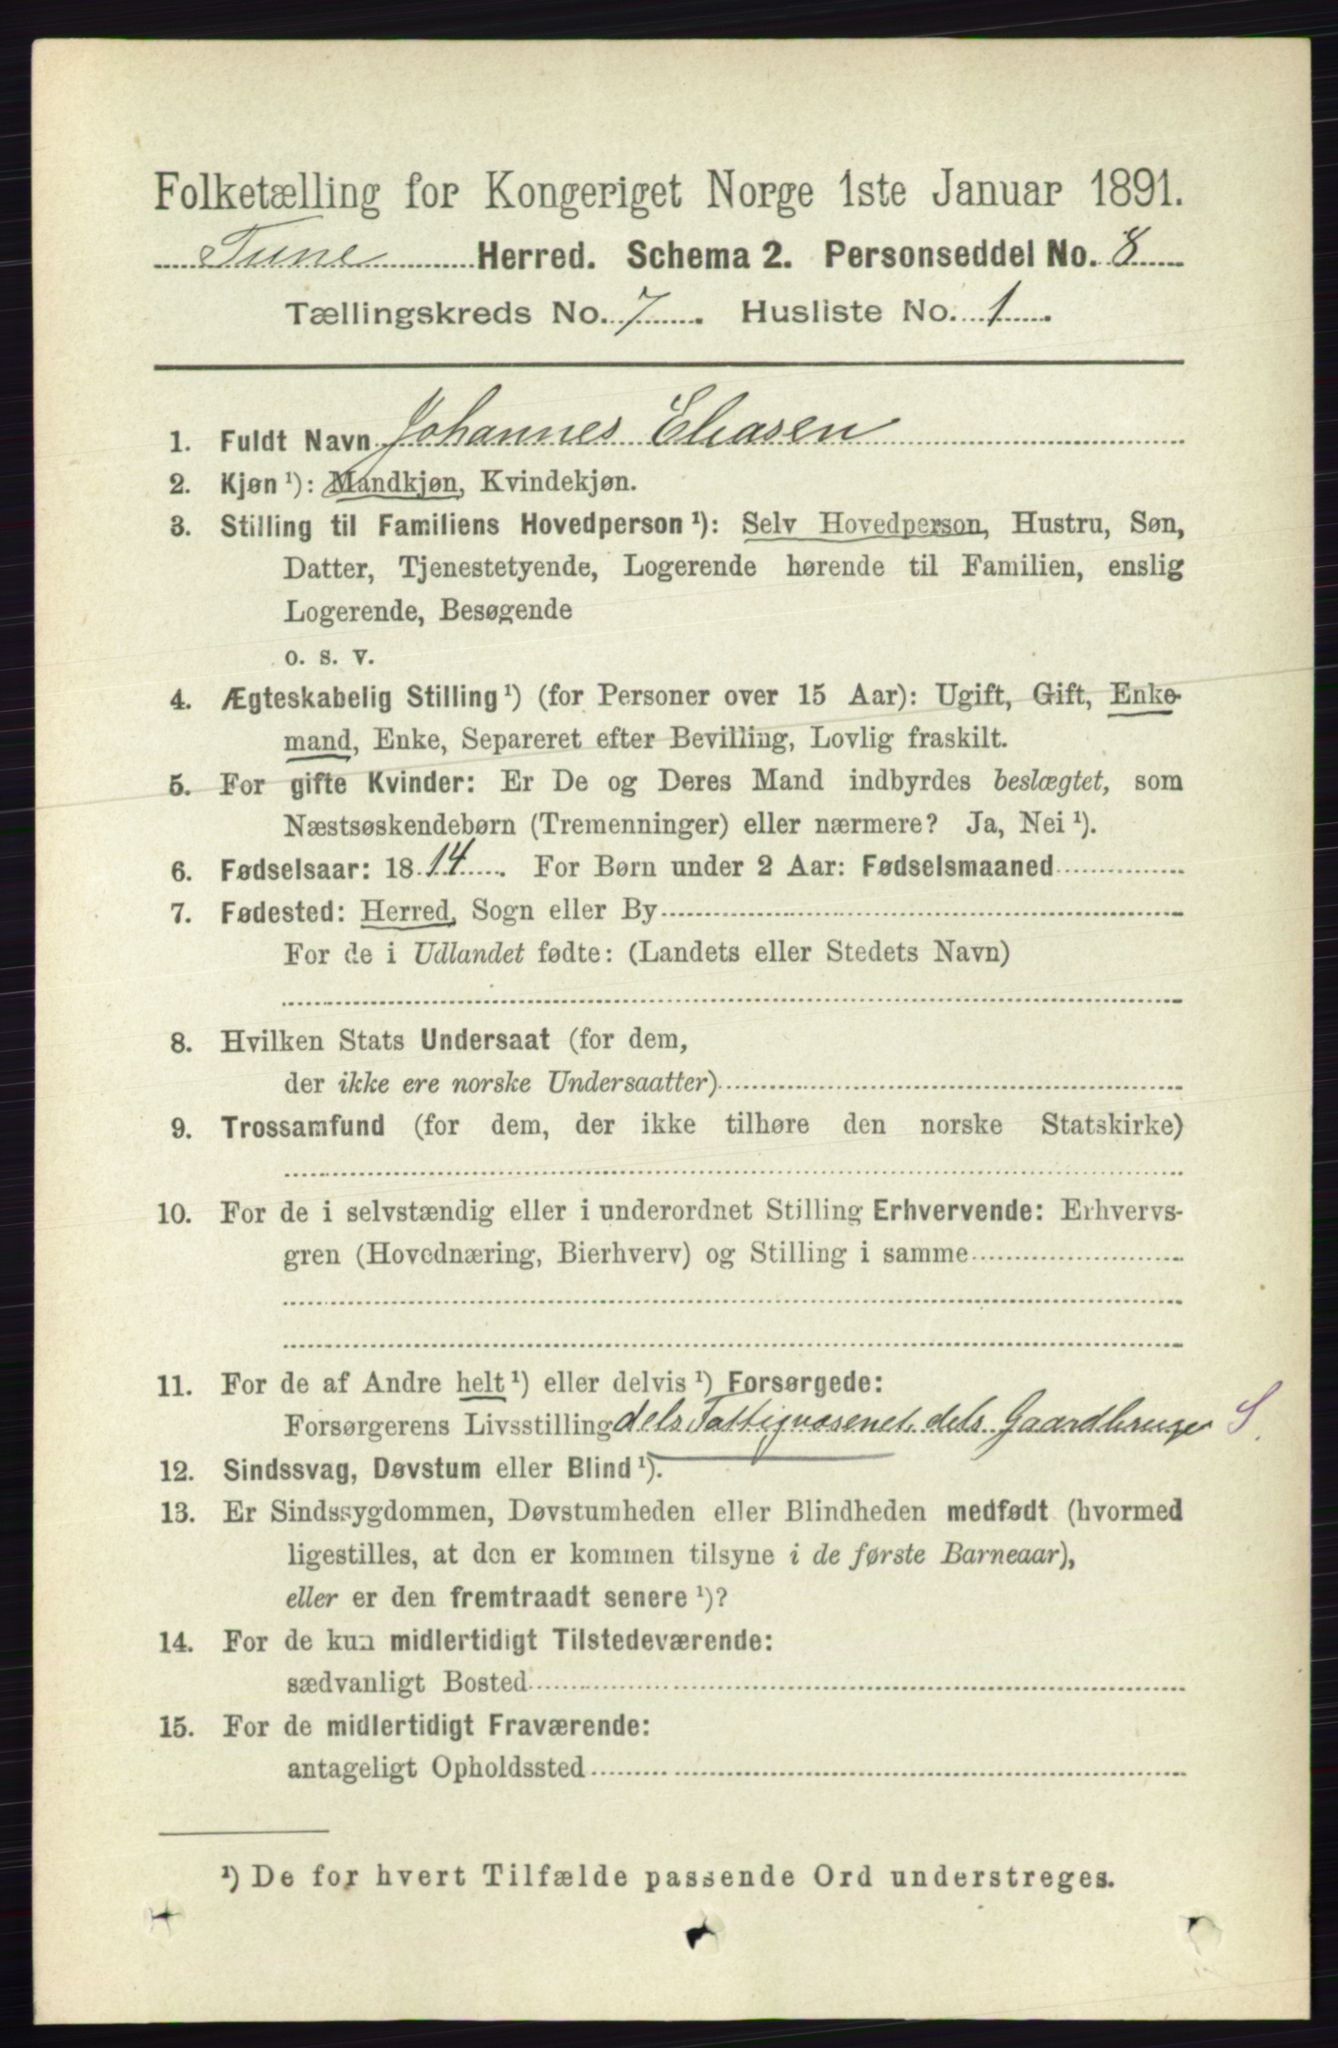 Folketælling for Kongeriget Norge 1ste Januar 1891.
Tune Herred. Schema 2. Personseddel No. 8
Tællingskreds No. 7. Husliste No. 1.
1. Fuldt Navn Johannes Eliasen
2. Kjøn ¹): Mandkjøn, Kvindekjøn.
3. Stilling til Familiens Hovedperson ¹): Selv Hovedperson, Hustru, Søn,
Datter, Tjenestetyende, Logerende hørende til Familien, enslig
Logerende, Besøgende
o. s. v.
4. Ægteskabelig Stilling ¹) (for Personer over 15 Aar): Ugift, Gift, Enke-
mand, Enke, Separeret efter Bevilling, Lovlig fraskilt.
5. For gifte Kvinder: Er De og Deres Mand indbyrdes beslægtet, som
Næstsøskendebørn (Tremenninger) eller nærmere? Ja, Nei ¹).
6. Fødselsaar: 1814. For Børn under 2 Aar: Fødselsmaaned
7. Fødested: Herred, Sogn eller By
For de i Udlandet fødte: (Landets eller Stedets Navn)
8. Hvilken Stats Undersaat (for dem,
der ikke ere norske Undersaatter)
9. Trossamfund (for dem, der ikke tilhøre den norske Statskirke)
10. For de i selvstændig eller i underordnet Stilling Erhvervende: Erhvervs-
gren (Hovednæring, Bierhverv) og Stilling i samme
11. For de af Andre helt ¹) eller delvis ¹) Forsørgede:
Forsørgerens Livsstilling dels Fattigvæsenet, dels Gaardbruger S.
12. Sindssvag, Døvstum eller Blind ¹).
13. Er Sindssygdommen, Døvstumheden eller Blindheden medfødt (hvormed
ligestilles, at den er kommen tilsyne i de første Barneaar),
eller er den fremtraadt senere ¹)?
14. For de kun midlertidigt Tilstedeværende:
sædvanligt Bosted
15. For de midlertidigt Fraværende:
antageligt Opholdssted
¹) De for hvert Tilfælde passende Ord understreges.